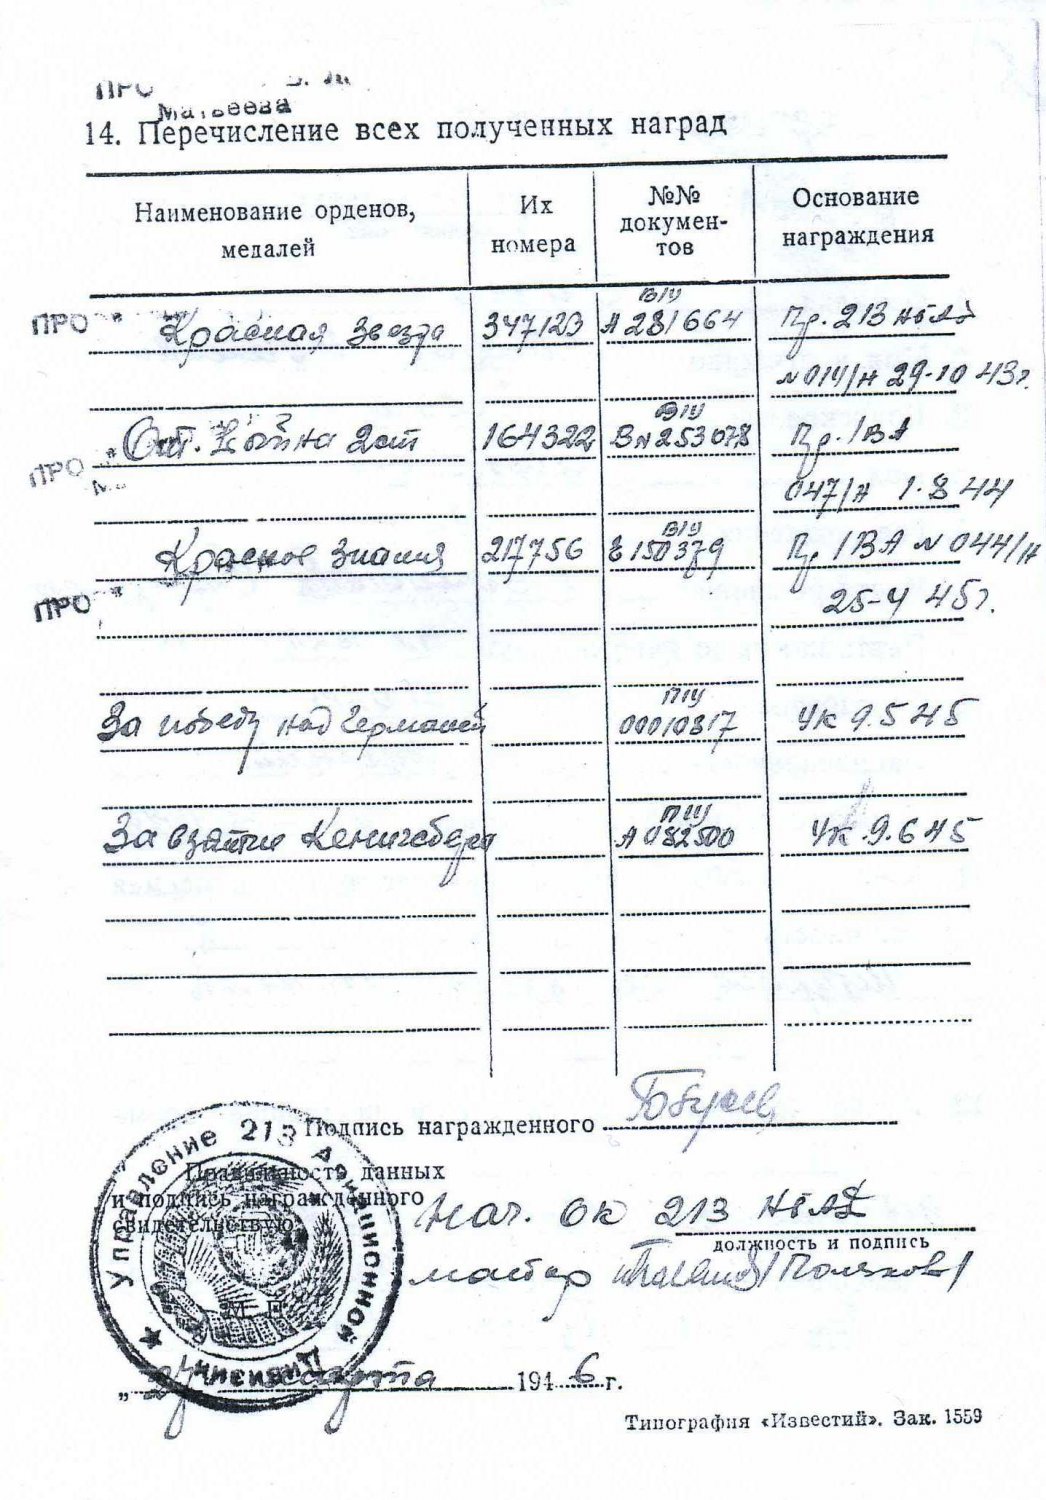 ПРО
Матвеева
14. Перечисление всех полученных наград
Наименование орденов, медалей
Их номера
№№ документов
Основание награждения
в/у
ПРО Красная Звезда 347123 А 281664 Пр. 213 НБАД
№ 014/н 29-10 43г.
в/у
От. Война 2 ст 164322 В№253078 Пр. 1ВА
ПРО
047/н 1.8 44
в/у
Красное Знамя 217756 Е 150379 Пр 1ВА № 044/н
ПРО 25-4 45г.
П/у
За победу над Германией 00010817 Ук 9.5 45
П/у
За взятие Кенигсберга А 082500 Ук. 9.6 45
Подпись награжденного
Правильность данных
и подпись награжденного
свидетельствую
Нач. ОК 213 НБАД
должность и подпись
майор /Поляков/
М. П.
Управление 213 Авиационной Дивизии
„27 марта 1946 г.
Типография «Известий». Зак. 1559